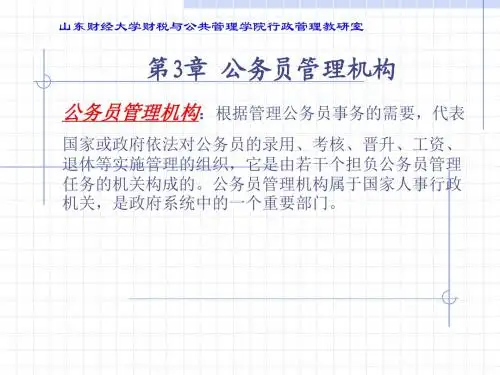 山东财经大学财税与公共管理学院行政管理教研室
第3章 公务员管理机构
公务员管理机构：根据管理公务员事务的需要，代表
国家或政府依法对公务员的录用、考核、晋升、工资、
退休等实施管理的组织，它是由若干个担负公务员管理
任务的机关构成的。公务员管理机构属于国家人事行政
机关，是政府系统中的一个重要部门。